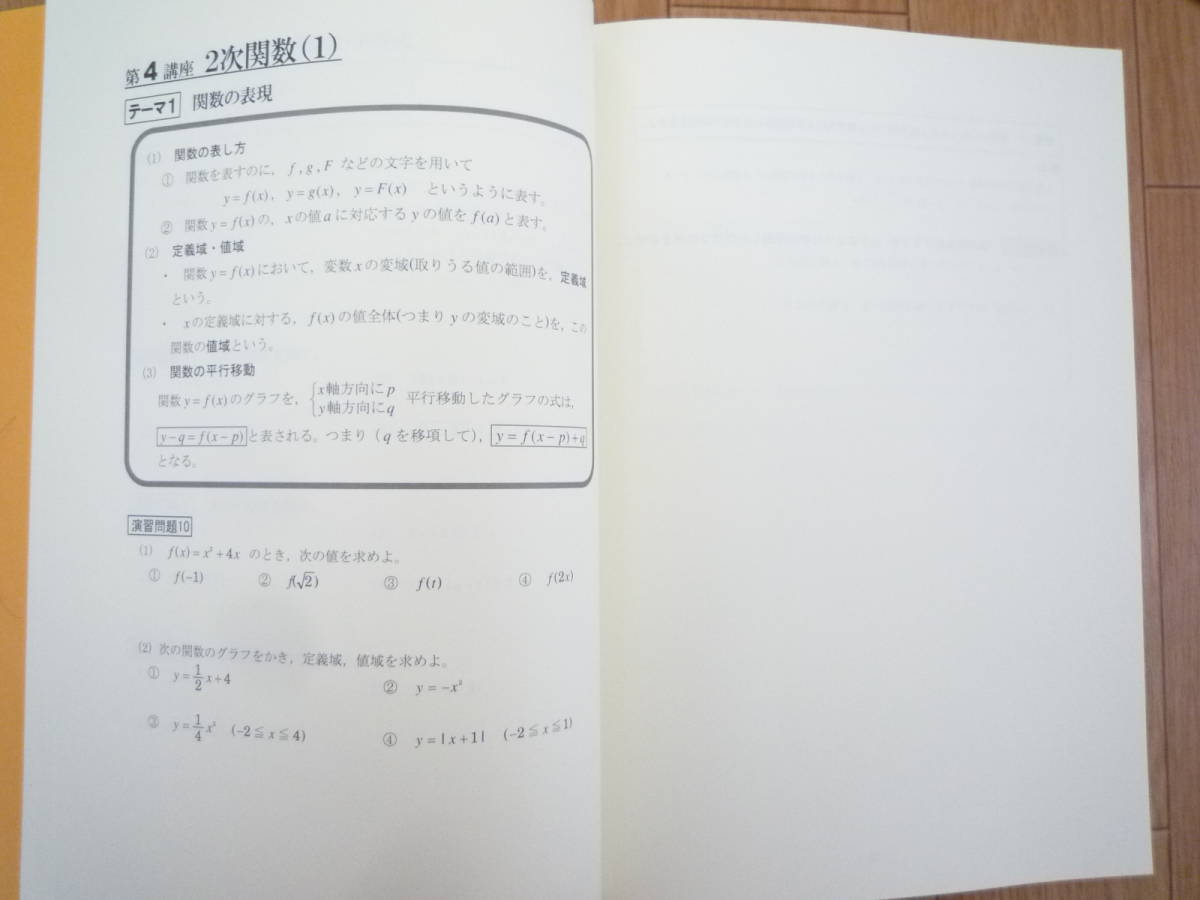 第4講座 2次関数(1)
テーマ1 関数の表現
(1) 関数の表し方
① 関数を表すのに, f , g , F などの文字を用いて
y=f(x), y=g(x), y=F(x) というように表す。
② 関数y=f(x)の, xの値aに対応するyの値をf(a)と表す。
(2) 定義域・値域
・ 関数y=f(x)において, 変数xの変域(取りうる値の範囲)を, 定義域
という。
・ xの定義域に対する, f(x)の値全体(つまりyの変域のこと)を, この
関数の値域という。
(3) 関数の平行移動
関数y=f(x)のグラフを, {x軸方向にp 平行移動したグラフの式は,
y軸方向にq
y−q=f(x−p) と表される。つまり(qを移項して), y=f(x−p)+q
となる。
演習問題10
(1) f(x)=x²+4x のとき, 次の値を求めよ。
① f(−1) ② f(√2) ③ f(t) ④ f(2x)
(2) 次の関数のグラフをかき, 定義域, 値域を求めよ。
① y=1/2 x+4 ② y=−x²
③ y=1/4 x² (−2≦x≦4) ④ y=|x+1| (−2≦x≦1)